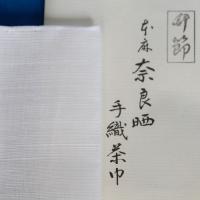 本麻
奈良晒
手織茶巾